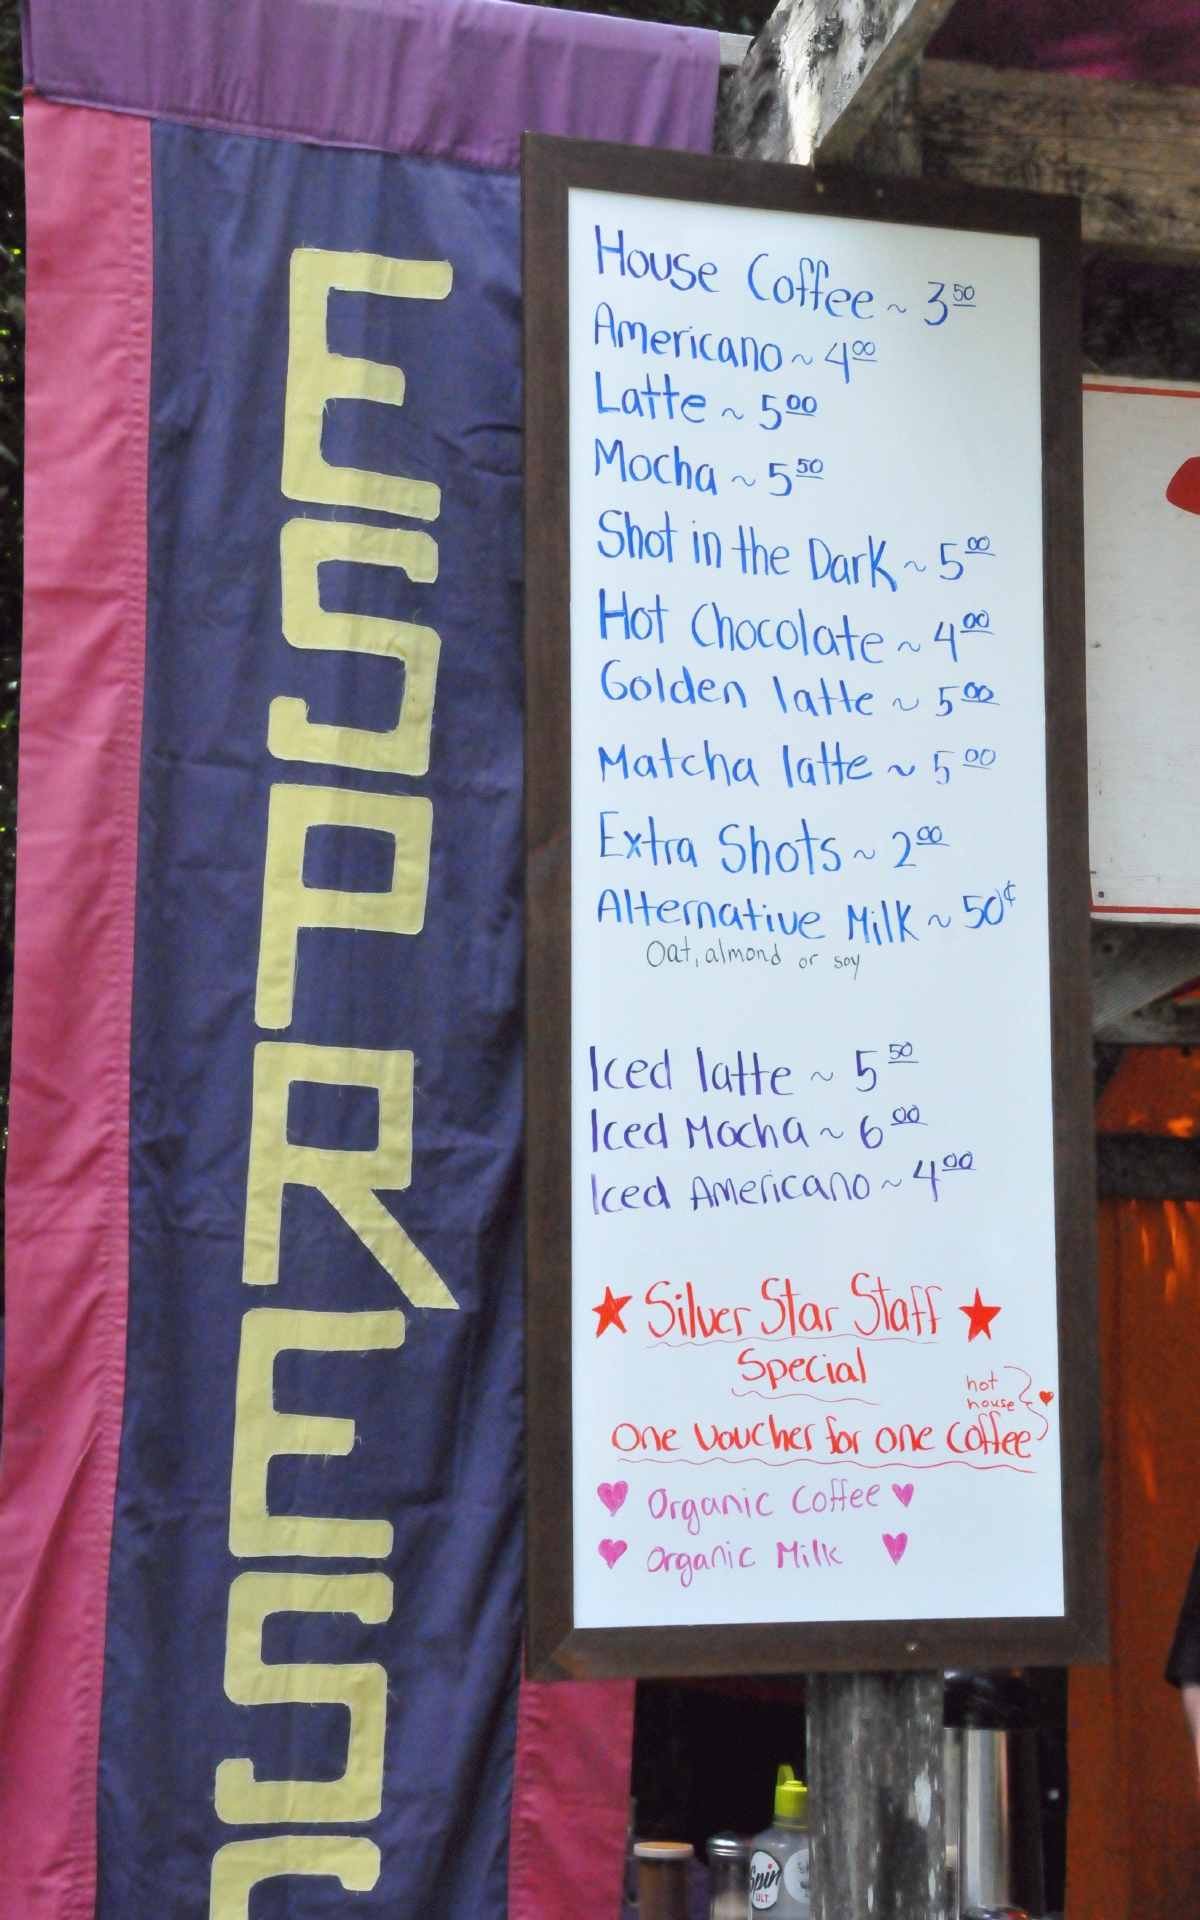 ESPRESS
House Coffee ~ 3 50
Americano ~ 4 00
Latte ~ 5 00
Mocha ~ 5 50
Shot in the Dark ~ 5 00
Hot Chocolate ~ 4 00
Golden latte ~ 5 00
Matcha latte ~ 5 00
Extra Shots ~ 2 00
Alternative Milk ~ 50¢
Oat, almond or soy
Iced latte ~ 5 50
Iced Mocha ~ 6 00
Iced Americano ~ 4 00
★ Silver Star Staff ★
Special
hot
house
One Voucher for one Coffee
♥ Organic Coffee ♥
♥ Organic Milk ♥
Spin
ULT.